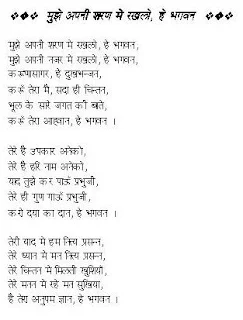 ❖❖❖ मुझे अपनी शरण मे रखलो, हे भगवन ❖❖❖
मुझे अपनी शरण मे रखलो, हे भगवन,
मुझे अपनी नजर मे रखलो, हे भगवन,
करुणासागर, हे दुखभन्जन,
करूँ तेरा मै, सदा ही चिन्तन,
भूल के सारे जगत की बाते,
करूँ तेरा आह्वान, हे भगवन ।
तेरे है उपकार अनेको,
तेरे है हरि नाम अनेको,
याद तुझे कर पाऊँ प्रभुजी,
तेरे ही गुण गाऊँ प्रभुजी,
करो दया का दान, हे भगवन ।
तेरी याद मे हम नित्य प्रसन्न,
तेरे ध्यान मे मन नित्य प्रसन्न,
तेरे चिन्तन मे मिलती खुशियाँ,
तेरे मनन मे रहे मन सुखिया,
है तेरा अनुपम ज्ञान, हे भगवन ।